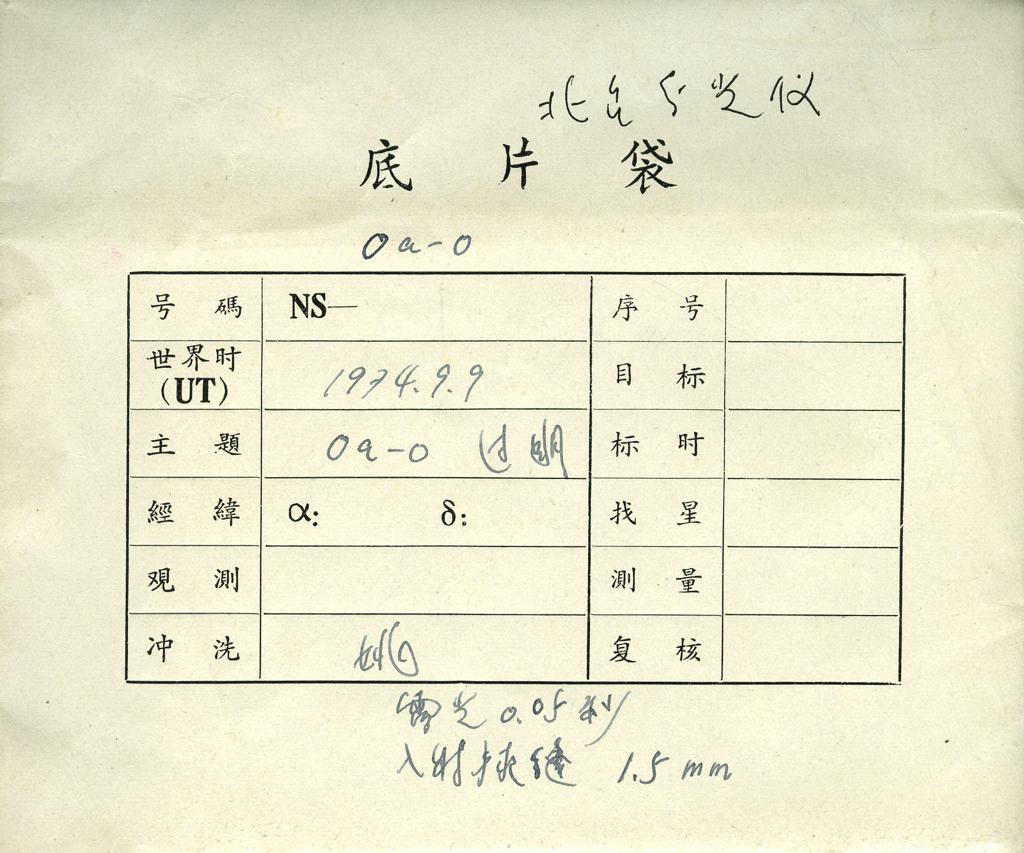 北京分光仪
底片袋
Oa-O
号碼 NS— 序号
世界时(UT) 1974.9.9 目标
主題 Oa-O 标时
經緯 α: δ: 找星
观測 測量
冲洗 姚 复核
露光 0.05 秒
入射狭缝 1.5 mm